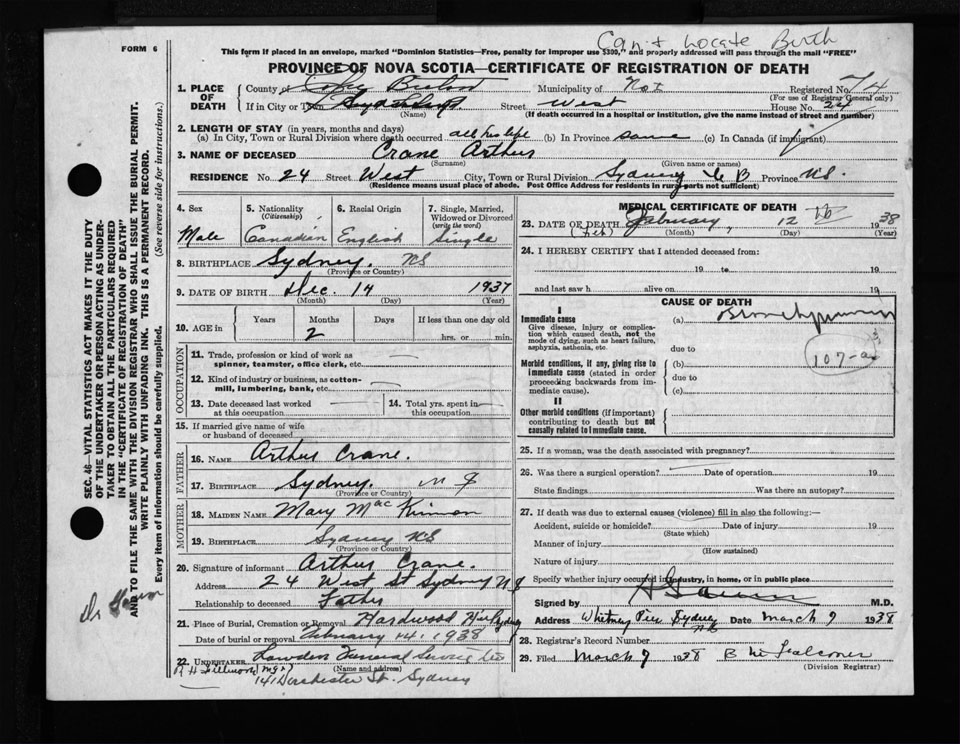 Can't Locate Birth
FORM 6
This form if placed in an envelope, marked "Dominion Statistics—Free, penalty for improper use $300," and properly addressed will pass through the mail "FREE"
PROVINCE OF NOVA SCOTIA—CERTIFICATE OF REGISTRATION OF DEATH
1. PLACE OF DEATH
County of Cape Breton Municipality of Registered No. 74
(For use of Registrar General only)
If in City or Town Sydney Street West House No. 24
(Name) (If death occurred in a hospital or institution, give the name instead of street and number)
2. LENGTH OF STAY (in years, months and days)
(a) In City, Town or Rural Division where death occurred all his life (b) In Province same (c) In Canada (if immigrant)
3. NAME OF DECEASED Crane Arthur
(Surname) (Given name or names)
RESIDENCE No. 24 Street West City, Town or Rural Division Sydney C B Province NS.
(Residence means usual place of abode. Post Office Address for residents in rural parts not sufficient)
4. Sex
Male
5. Nationality
(Citizenship)
Canadian
6. Racial Origin
English
7. Single, Married, Widowed or Divorced
(write the word)
Single
8. BIRTHPLACE Sydney. NS
(Province or Country)
9. DATE OF BIRTH Dec. 14 1937
(Month) (Day) (Year)
10. AGE in
Years
Months
2
Days
If less than one day old
hrs. or min.
OCCUPATION
11. Trade, profession or kind of work as
spinner, teamster, office clerk, etc.
12. Kind of industry or business, as cotton-
mill, lumbering, bank, etc.
13. Date deceased last worked
at this occupation
14. Total yrs. spent in
this occupation
15. If married give name of wife
or husband of deceased
FATHER
16. NAME Arthur Crane.
17. BIRTHPLACE Sydney. N S
(Province or Country)
MOTHER
18. MAIDEN NAME Mary MacKinnon
19. BIRTHPLACE Sydney NS
(Province or Country)
20. Signature of informant Arthur Crane.
Address 24 West St Sydney N S
Relationship to deceased Father
21. Place of Burial, Cremation or Removal Hardwood Hill Sydney
Date of burial or removal February 14. 1938
22. UNDERTAKER Lowden Funeral Service Ltd
(Name and address)
141 Dorchester St. Sydney
MEDICAL CERTIFICATE OF DEATH
23. DATE OF DEATH February, 12 1938
(Feb) (Month) (Day) (Year)
24. I HEREBY CERTIFY that I attended deceased from:
19 to 19
and last saw h alive on 19
CAUSE OF DEATH
I
Immediate cause
Give disease, injury or complication which caused death, not the mode of dying, such as heart failure, asphyxia, asthenia, etc.
(a) Bronchopneumonia
due to
Morbid conditions, if any, giving rise to immediate cause (stated in order proceeding backwards from immediate cause).
(b)
due to
(c)
107-a
II
Other morbid conditions (if important) contributing to death but not causally related to immediate cause.
25. If a woman, was the death associated with pregnancy?
26. Was there a surgical operation? Date of operation 19
State findings Was there an autopsy?
27. If death was due to external causes (violence) fill in also the following:—
Accident, suicide or homicide? Date of injury 19
(State which)
Manner of injury
(How sustained)
Nature of injury
Specify whether injury occurred in industry, in home, or in public place
Signed by M.D.
Address Whitney Pier Sydney NS Date March 9 1938
28. Registrar's Record Number
29. Filed March 9 1938 B McFalconer
(Division Registrar)
SEC. 46—VITAL STATISTICS ACT MAKES IT THE DUTY
OF THE UNDERTAKER OR PERSON ACTING AS UNDER-
TAKER TO OBTAIN ALL THE PARTICULARS REQUIRED
IN THE "CERTIFICATE OF REGISTRATION OF DEATH"
AND TO FILE THE SAME WITH THE DIVISION REGISTRAR WHO SHALL ISSUE THE BURIAL PERMIT.
WRITE PLAINLY WITH UNFADING INK. THIS IS A PERMANENT RECORD.
Every item of information should be carefully supplied. (See reverse side for instructions.)